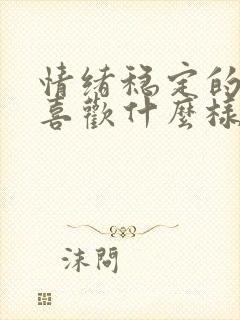 情绪稳定的
喜歡什麼樣
沫問